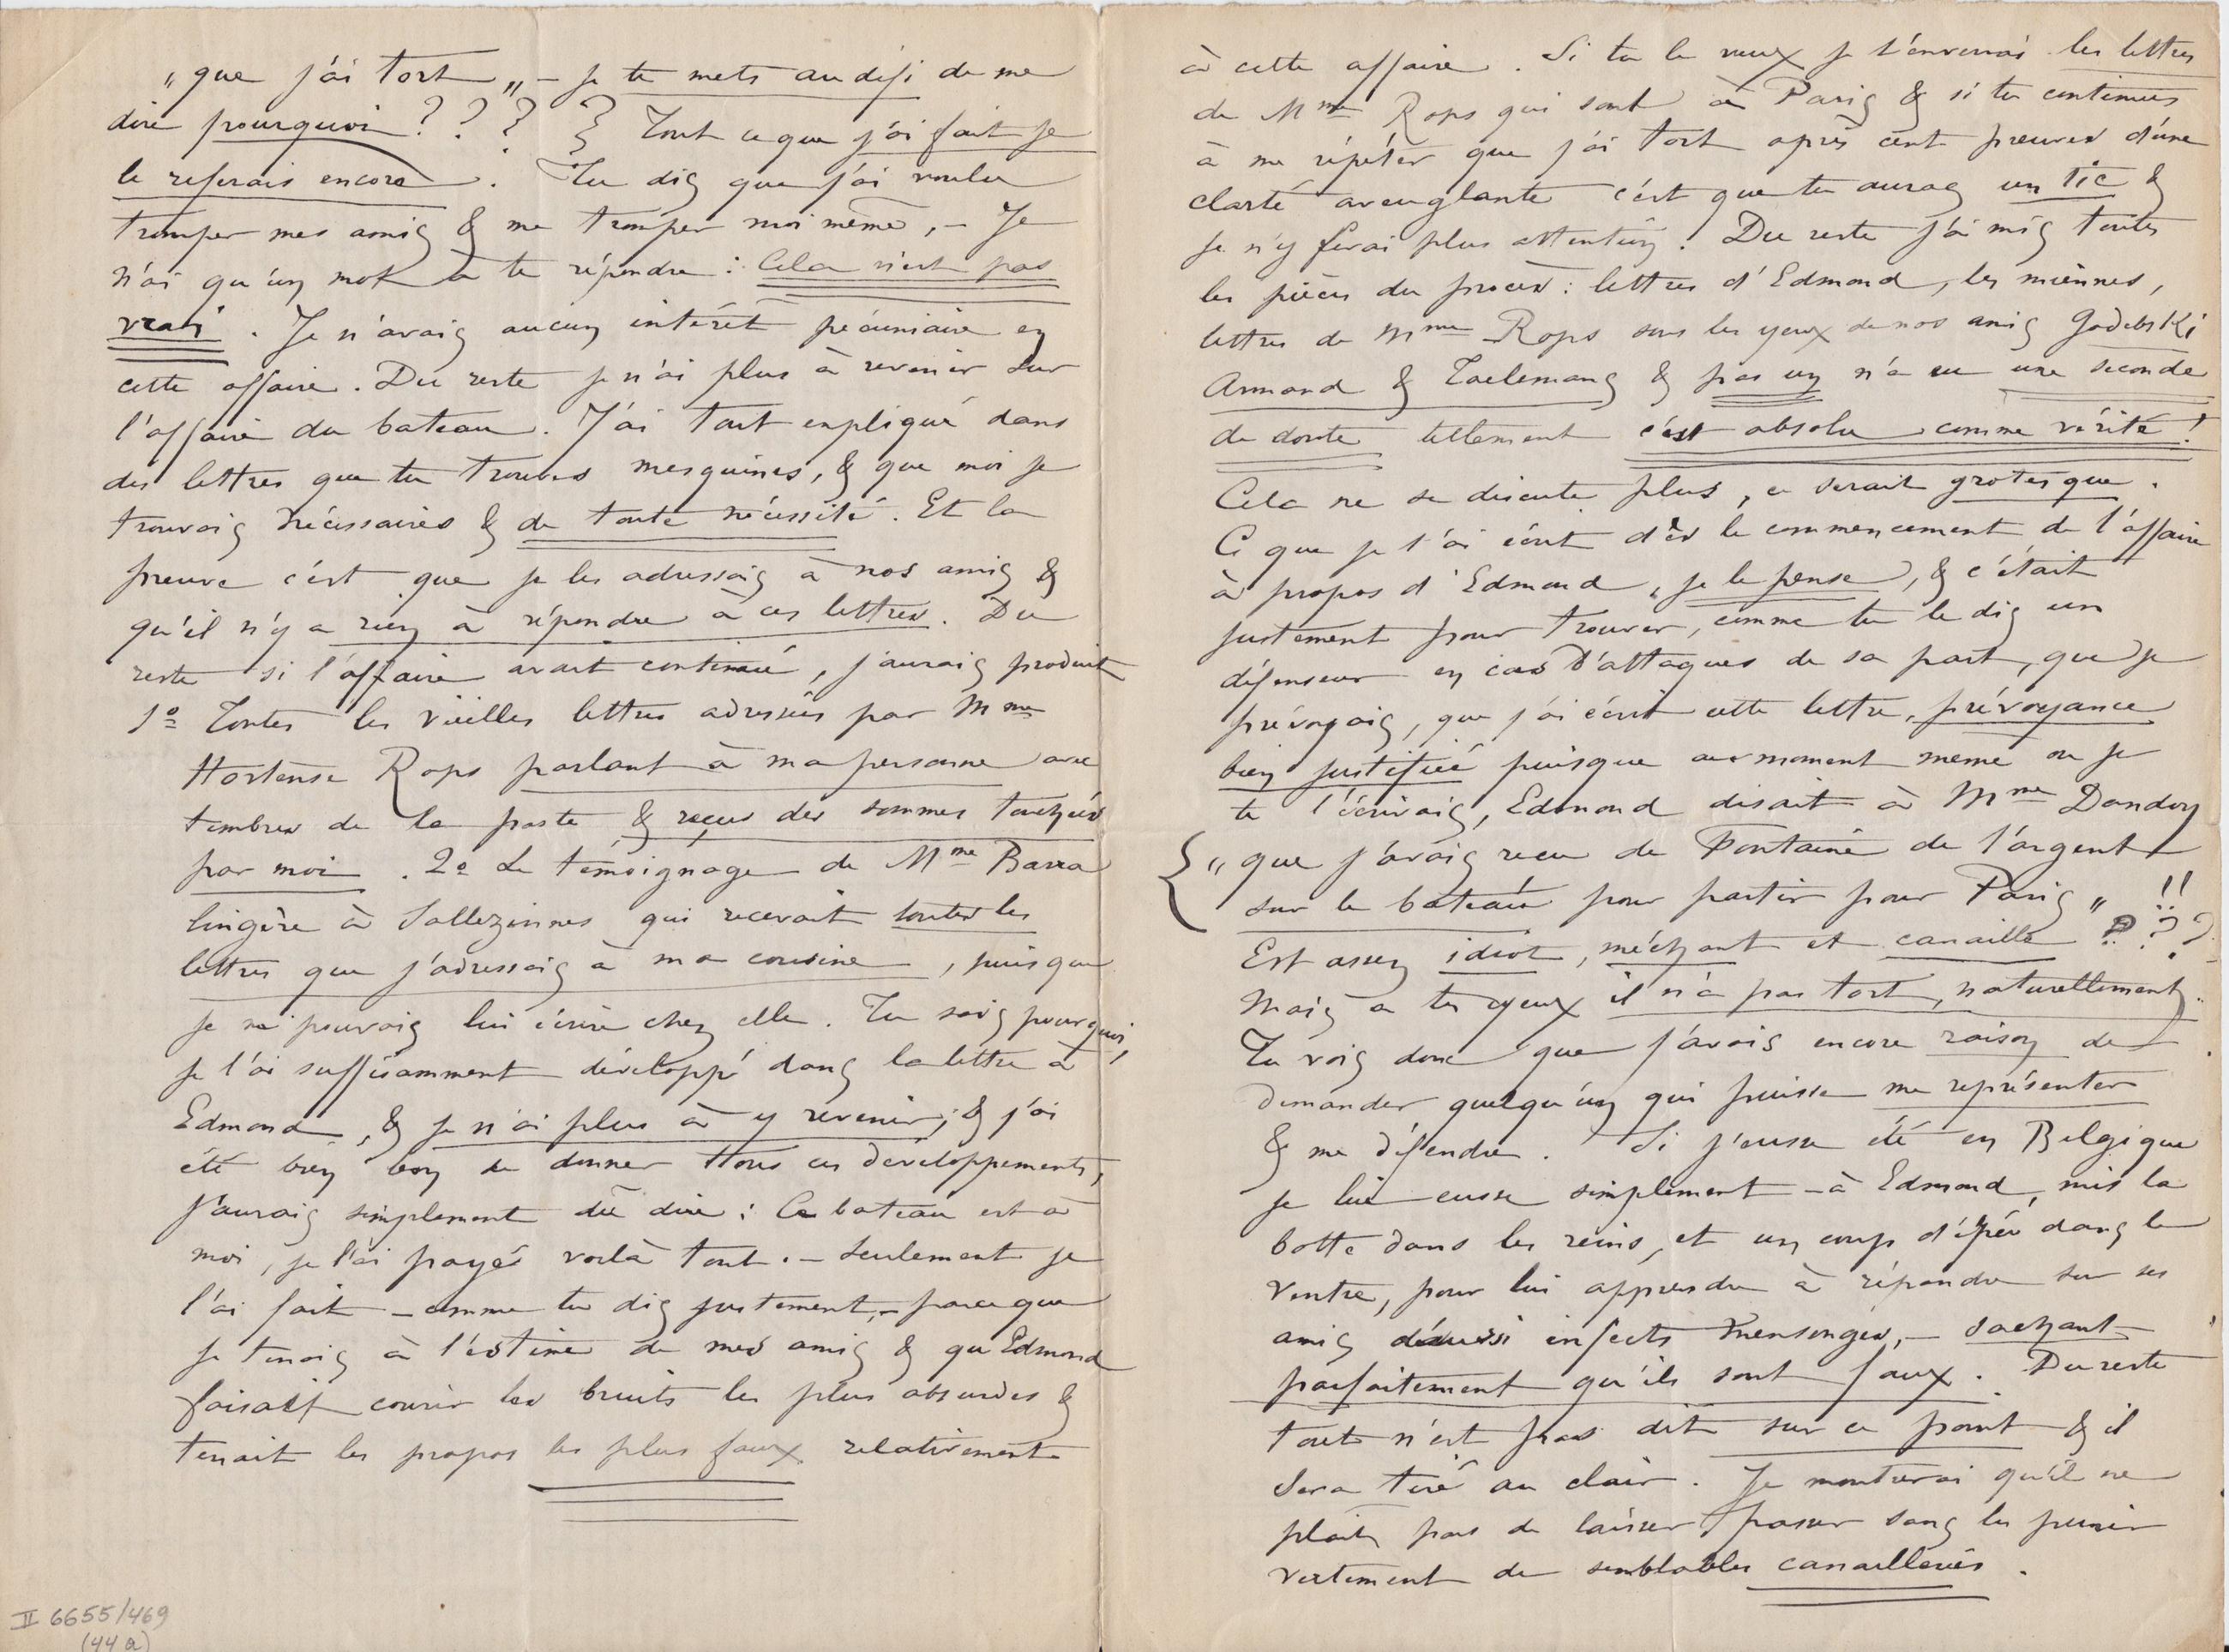 „que j'ai tort„ – je te mets au défi de me
dire pourquoi ? ? ? ? Tout ce que j'ai fait je
le referais encore. Tu dis que j'ai voulu
tromper mes amis & me tromper moi même, – Je
n'ai qu'un mot à te répondre : Cela n'est pas
vrai. Je n'avais aucun intérêt pécuniaire en
cette affaire. Du reste je n'ai plus à revenir sur
l'affaire du bateau. J'ai tout expliqué dans
des lettres que tu trouves mesquines, & que moi je
trouvais nécessaires & de toute nécessité. Et la
preuve c'est que je les adressais à nos amis &
qu'il n'y a rien à répondre à ces lettres. Du
reste si l'affaire avait continué, j'aurais produit
1º Toutes les vieilles lettres adressées par Mme
Hortense Rops parlant à ma personne avec
timbres de la poste & reçus des sommes touchées
par moi. 2º Le témoignage de Mme Barra
lingère à Salzinnes qui recevait toutes les
lettres que j'adressais à ma cousine, puisque
je ne pouvais lui écrire chez elle. Tu sais pourquoi,
je l'ai suffisamment développé dans la lettre à
Edmond, & je n'ai plus à y revenir; & j'ai
été bien bon de donner tous ces développements,
j'aurais simplement dû dire : Ce bateau est à
moi, je l'ai payé voilà tout. – Seulement je
l'ai fait – comme tu dis justement, – parceque
je tenais à l'estime de mes amis & qu'Edmond
faisait courir les bruits les plus absurdes &
tenait les propos les plus faux relativement
à cette affaire. Si tu le veux je t'enverrai les lettres
de Mme Rops qui sont à Paris & si tu continues
à me répéter que j'ai tort après cent preuves d'une
clarté aveuglante c'est que tu auras un tic &
je n'y ferai plus attention. Du reste j'ai mis toutes
les pièces du procès : lettres d'Edmond, les miennes,
lettres de Mme Rops sous les yeux de nos amis Godebski
Armand & Taelemans & pas un n'a eu une seconde
de doute tellement c'est absolu comme vérité !
Cela ne se discute plus, ce serait grotesque.
Ce que je t'ai écrit dès le commencement de l'affaire
à propos d'Edmond, je le pense, & c'était
justement pour trouver, comme tu le dis un
défenseur en cas d'attaques de sa part, que je
prévoyais, que j'ai écrit cette lettre, prévoyance
bien justifiée puisque au moment même où je
te l'écrivais, Edmond disait à Mme Dandoy
„que j'avais reçu de Fontaine de l'argent
sur le bateau pour partir pour Paris„ !!
Est assez idiot, méchant et canaille ? ? ?
Mais à tes yeux il n'a pas tort, naturellement.
Tu vois donc que j'avais encore raison de
demander quelqu'un qui puisse me représenter
& me défendre. Si j'eusse été en Belgique
je lui eusse simplement – à Edmond, mis la
botte dans les reins, et un coup d'épée dans le
ventre, pour lui apprendre à répandre sur ses
amis d'aussi infects mensonges, – sachant
parfaitement qu'ils sont faux. Du reste
tout n'est pas dit sur ce point & il
sera tiré au clair. Je montrerai qu'il ne
plait pas de laisser passer sans les punir
vertement de semblables canailleries.
II 6655/469
(44 a)